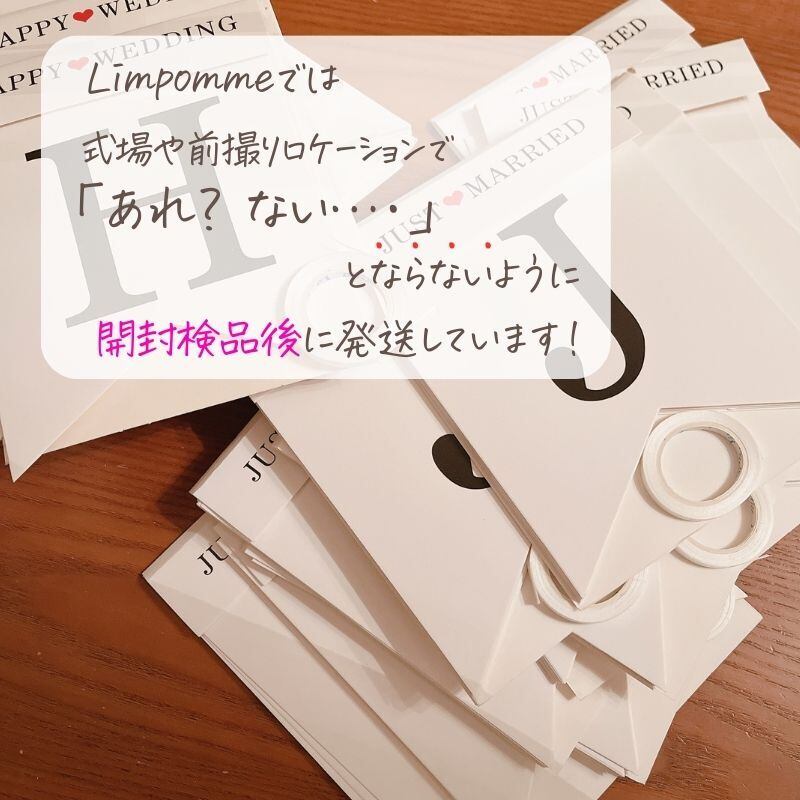 HAPPY❤WEDDING
HAPPY❤WEDDING
H
Limpommeでは
式場や前撮りロケーションで
「あれ? ない････」
とならないように
開封検品後に発送しています!
JUST❤MARRIED
JUST
MARRIED
JUST❤MARRIED
J
J
JUST
JUST